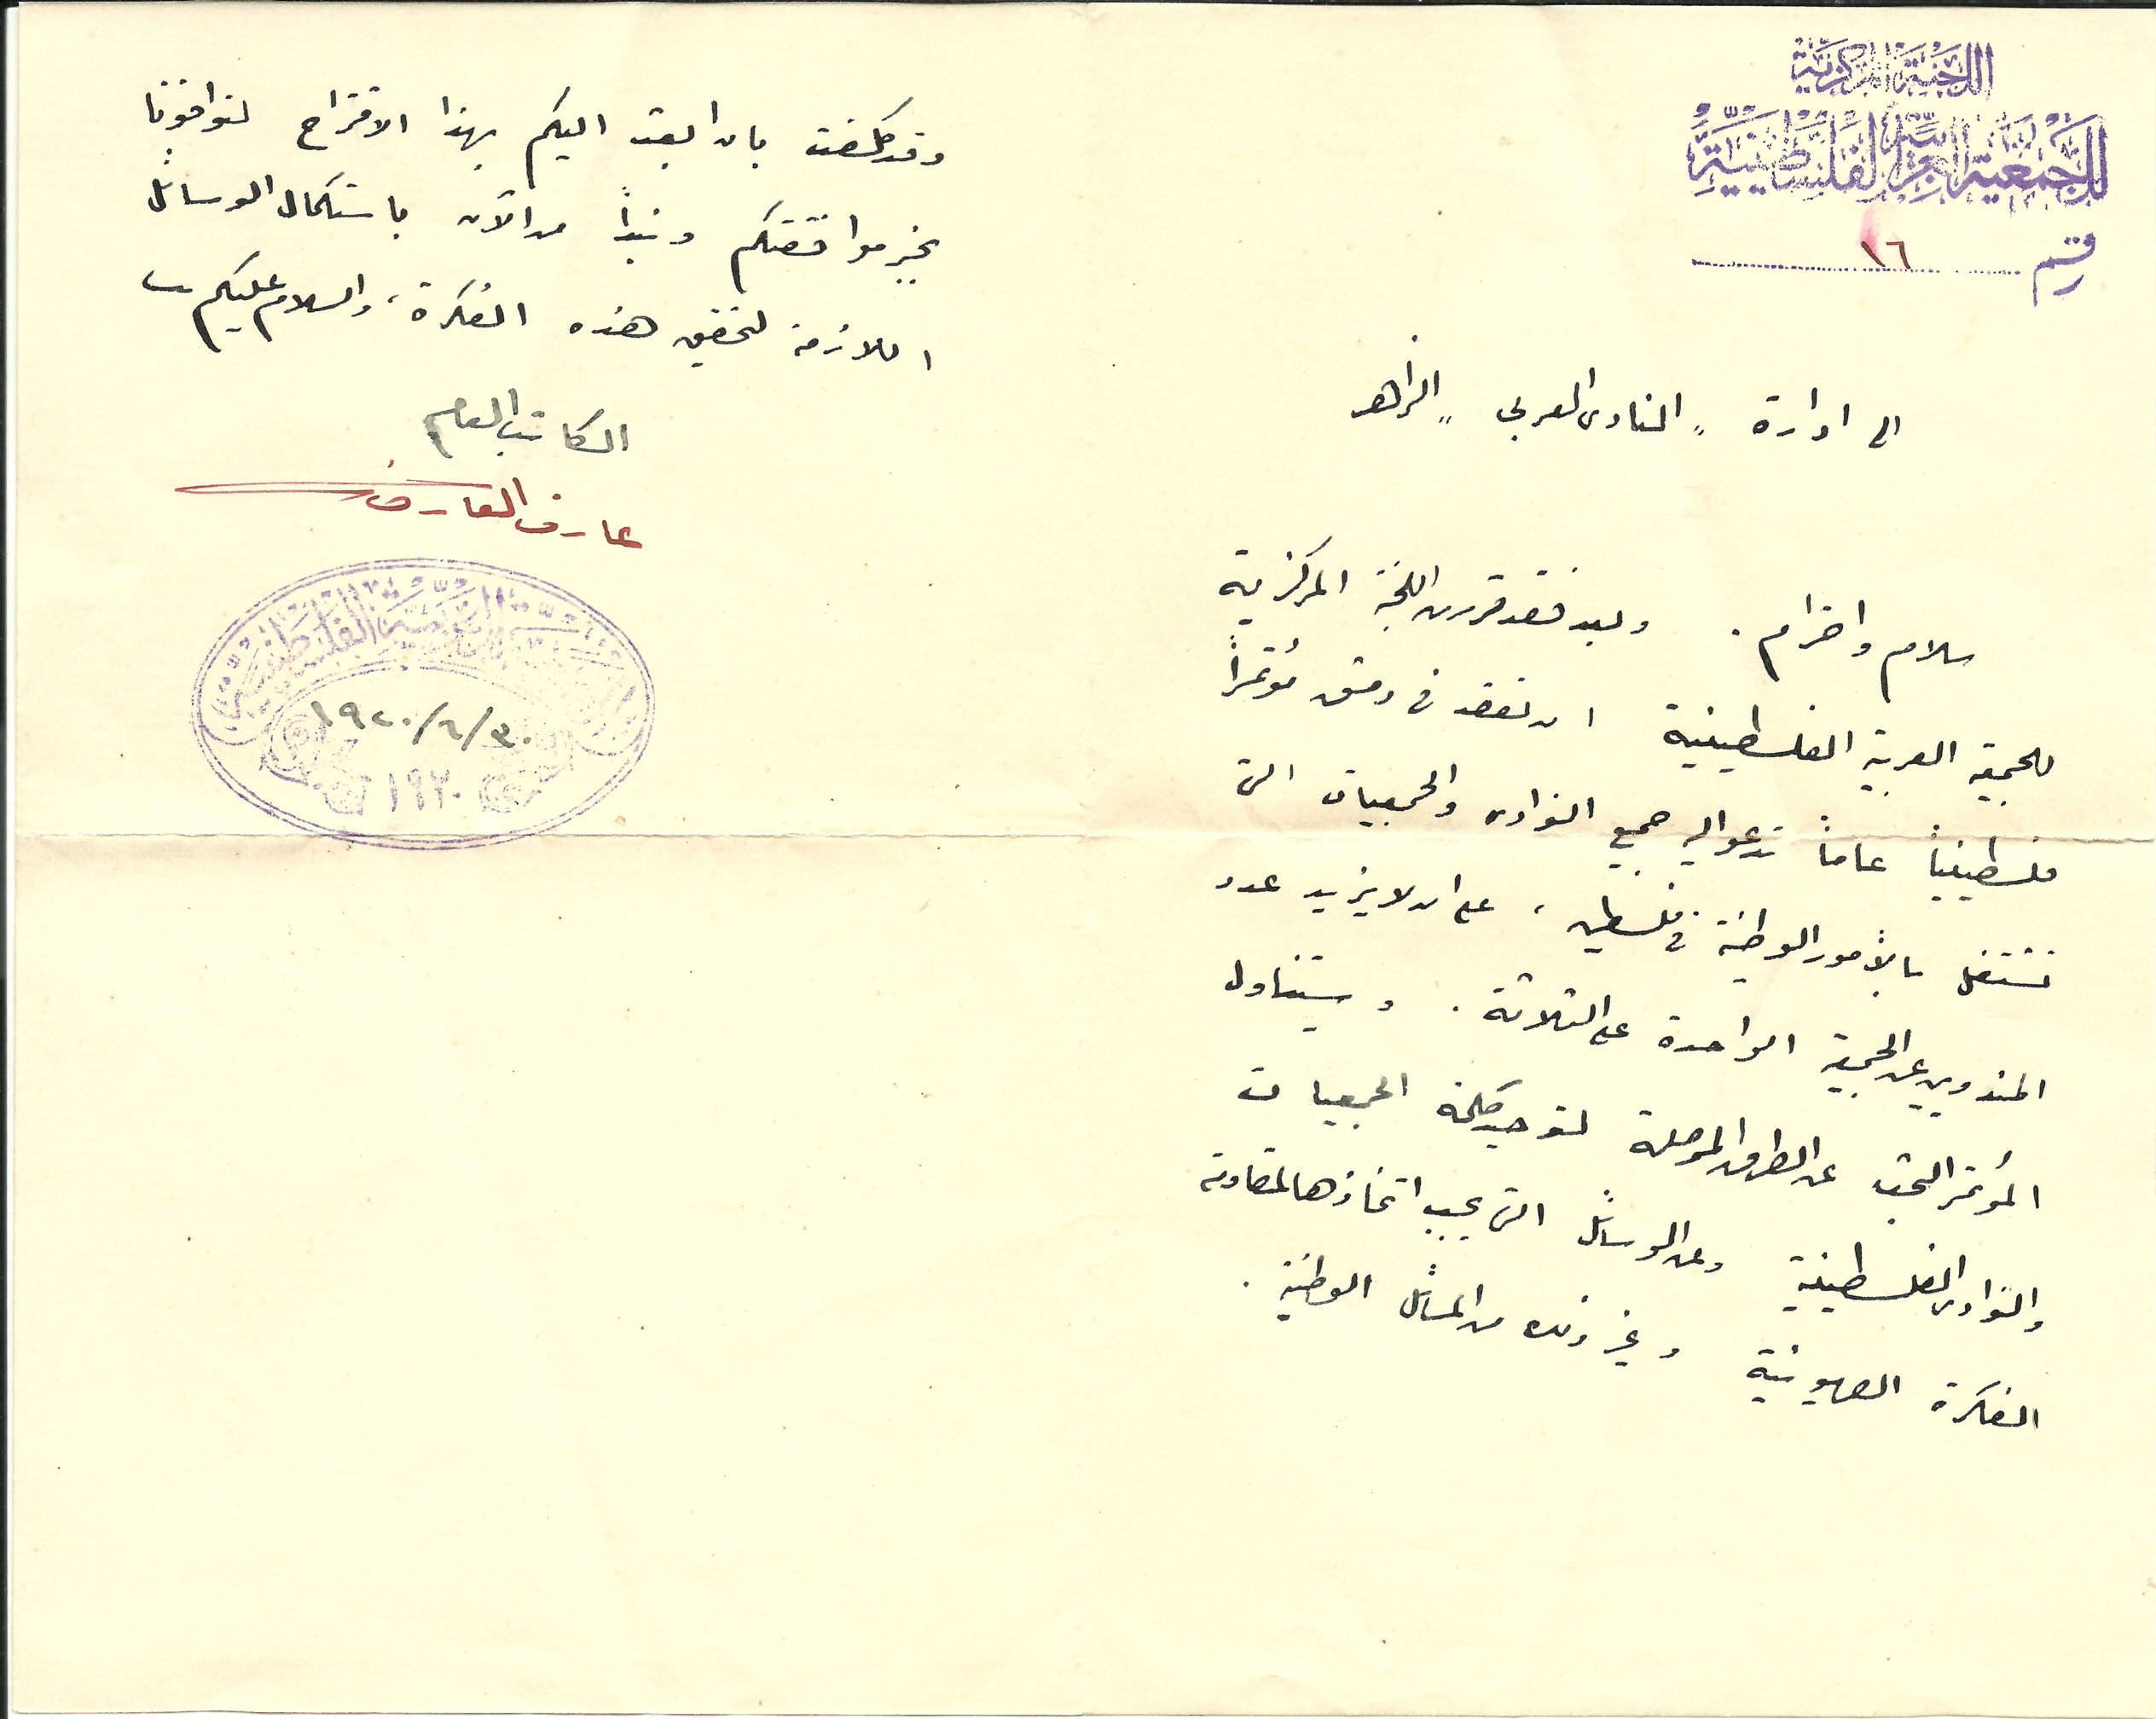 اللجنة المركزية
للجمعية العربية الفلسطينية
رقم ١٦
الى ادارة "النادى العربى" الزاهر
سلام واحترام . وبعد فقد قررت اللجنة المركزية
للجمعية العربية الفلسطينية ان تعقد فى دمشق مؤتمراً
فلسطينياً عاماً تدعو اليه جميع النوادى والجمعيات التى
تشتغل بالأمور الوطنية فى فلسطين ، على ان لا يزيد عدد
المندوبين عن الجمعية الواحدة على الثلاثة . وسيتناول
المؤتمر البحث عن الطرق الموصلة لتوحيد كلمة الجمعيات
والنوادى الفلسطينية وعن الوسائل التى يجب اتخاذها لمقاومة
الفكرة الصهيونية وغير ذلك من المسائل الوطنية .
وقد كلفت بان ابعث اليكم بهذا الاقتراح لتوافونا
بخبر موافقتكم ونبدأ من الآن باستكمال الوسائل
اللازمة لتحقيق هذه الفكرة ، والسلام عليكم
الكاتب العام
عارف العارف
العربية الفلسطينية
١٩٢٠/٦/٣٠
١٩٢٠